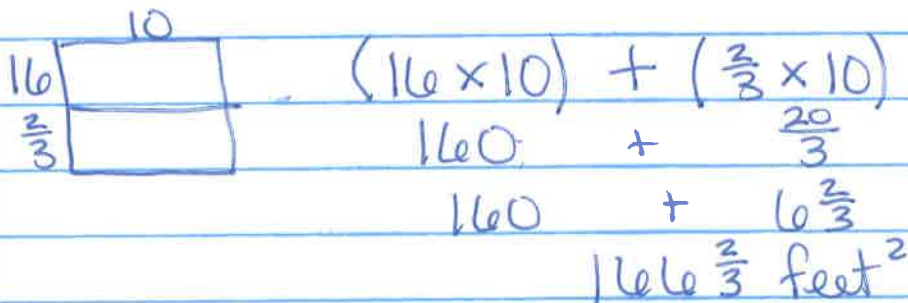 10
16 (16 × 10) + (2/3 × 10)
2/3 160 + 20/3
160 + 6 2/3
166 2/3 feet²